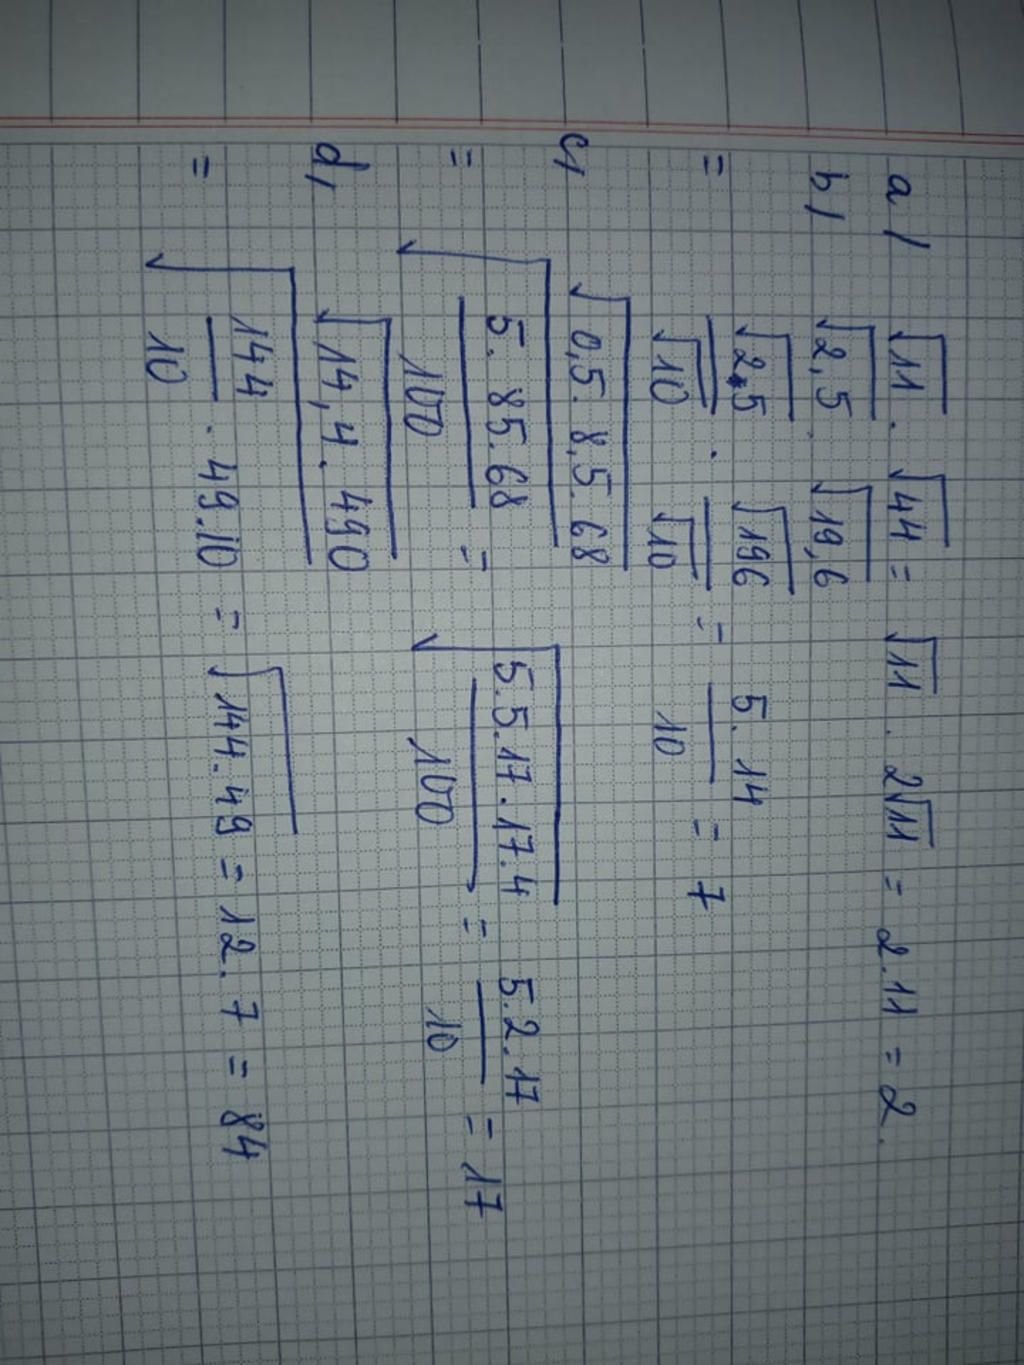 a/ √11 . √44 = √11 . 2√11 = 2.11 = 2.
b/ √2,5 . √19,6
= √25/√10 . √196/√10 = 5.14/10 = 7
c, √(0,5. 8,5. 68)
= √(5. 85. 68/100) = √(5.5.17.17.4/100) = 5.2.17/10 = 17
d, √(14,4. 490)
= √(144/10 . 49.10) = √(144.49) = 12. 7 = 84